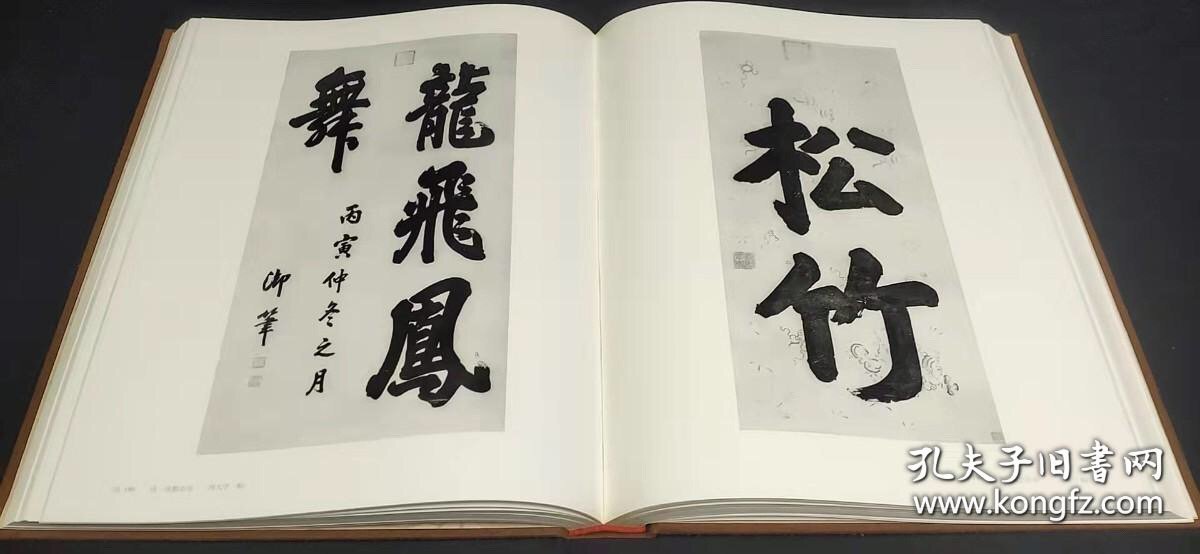 松竹
龍飛鳳
舞
丙寅仲冬之月
御筆
孔夫子旧书网
www.kongfz.com